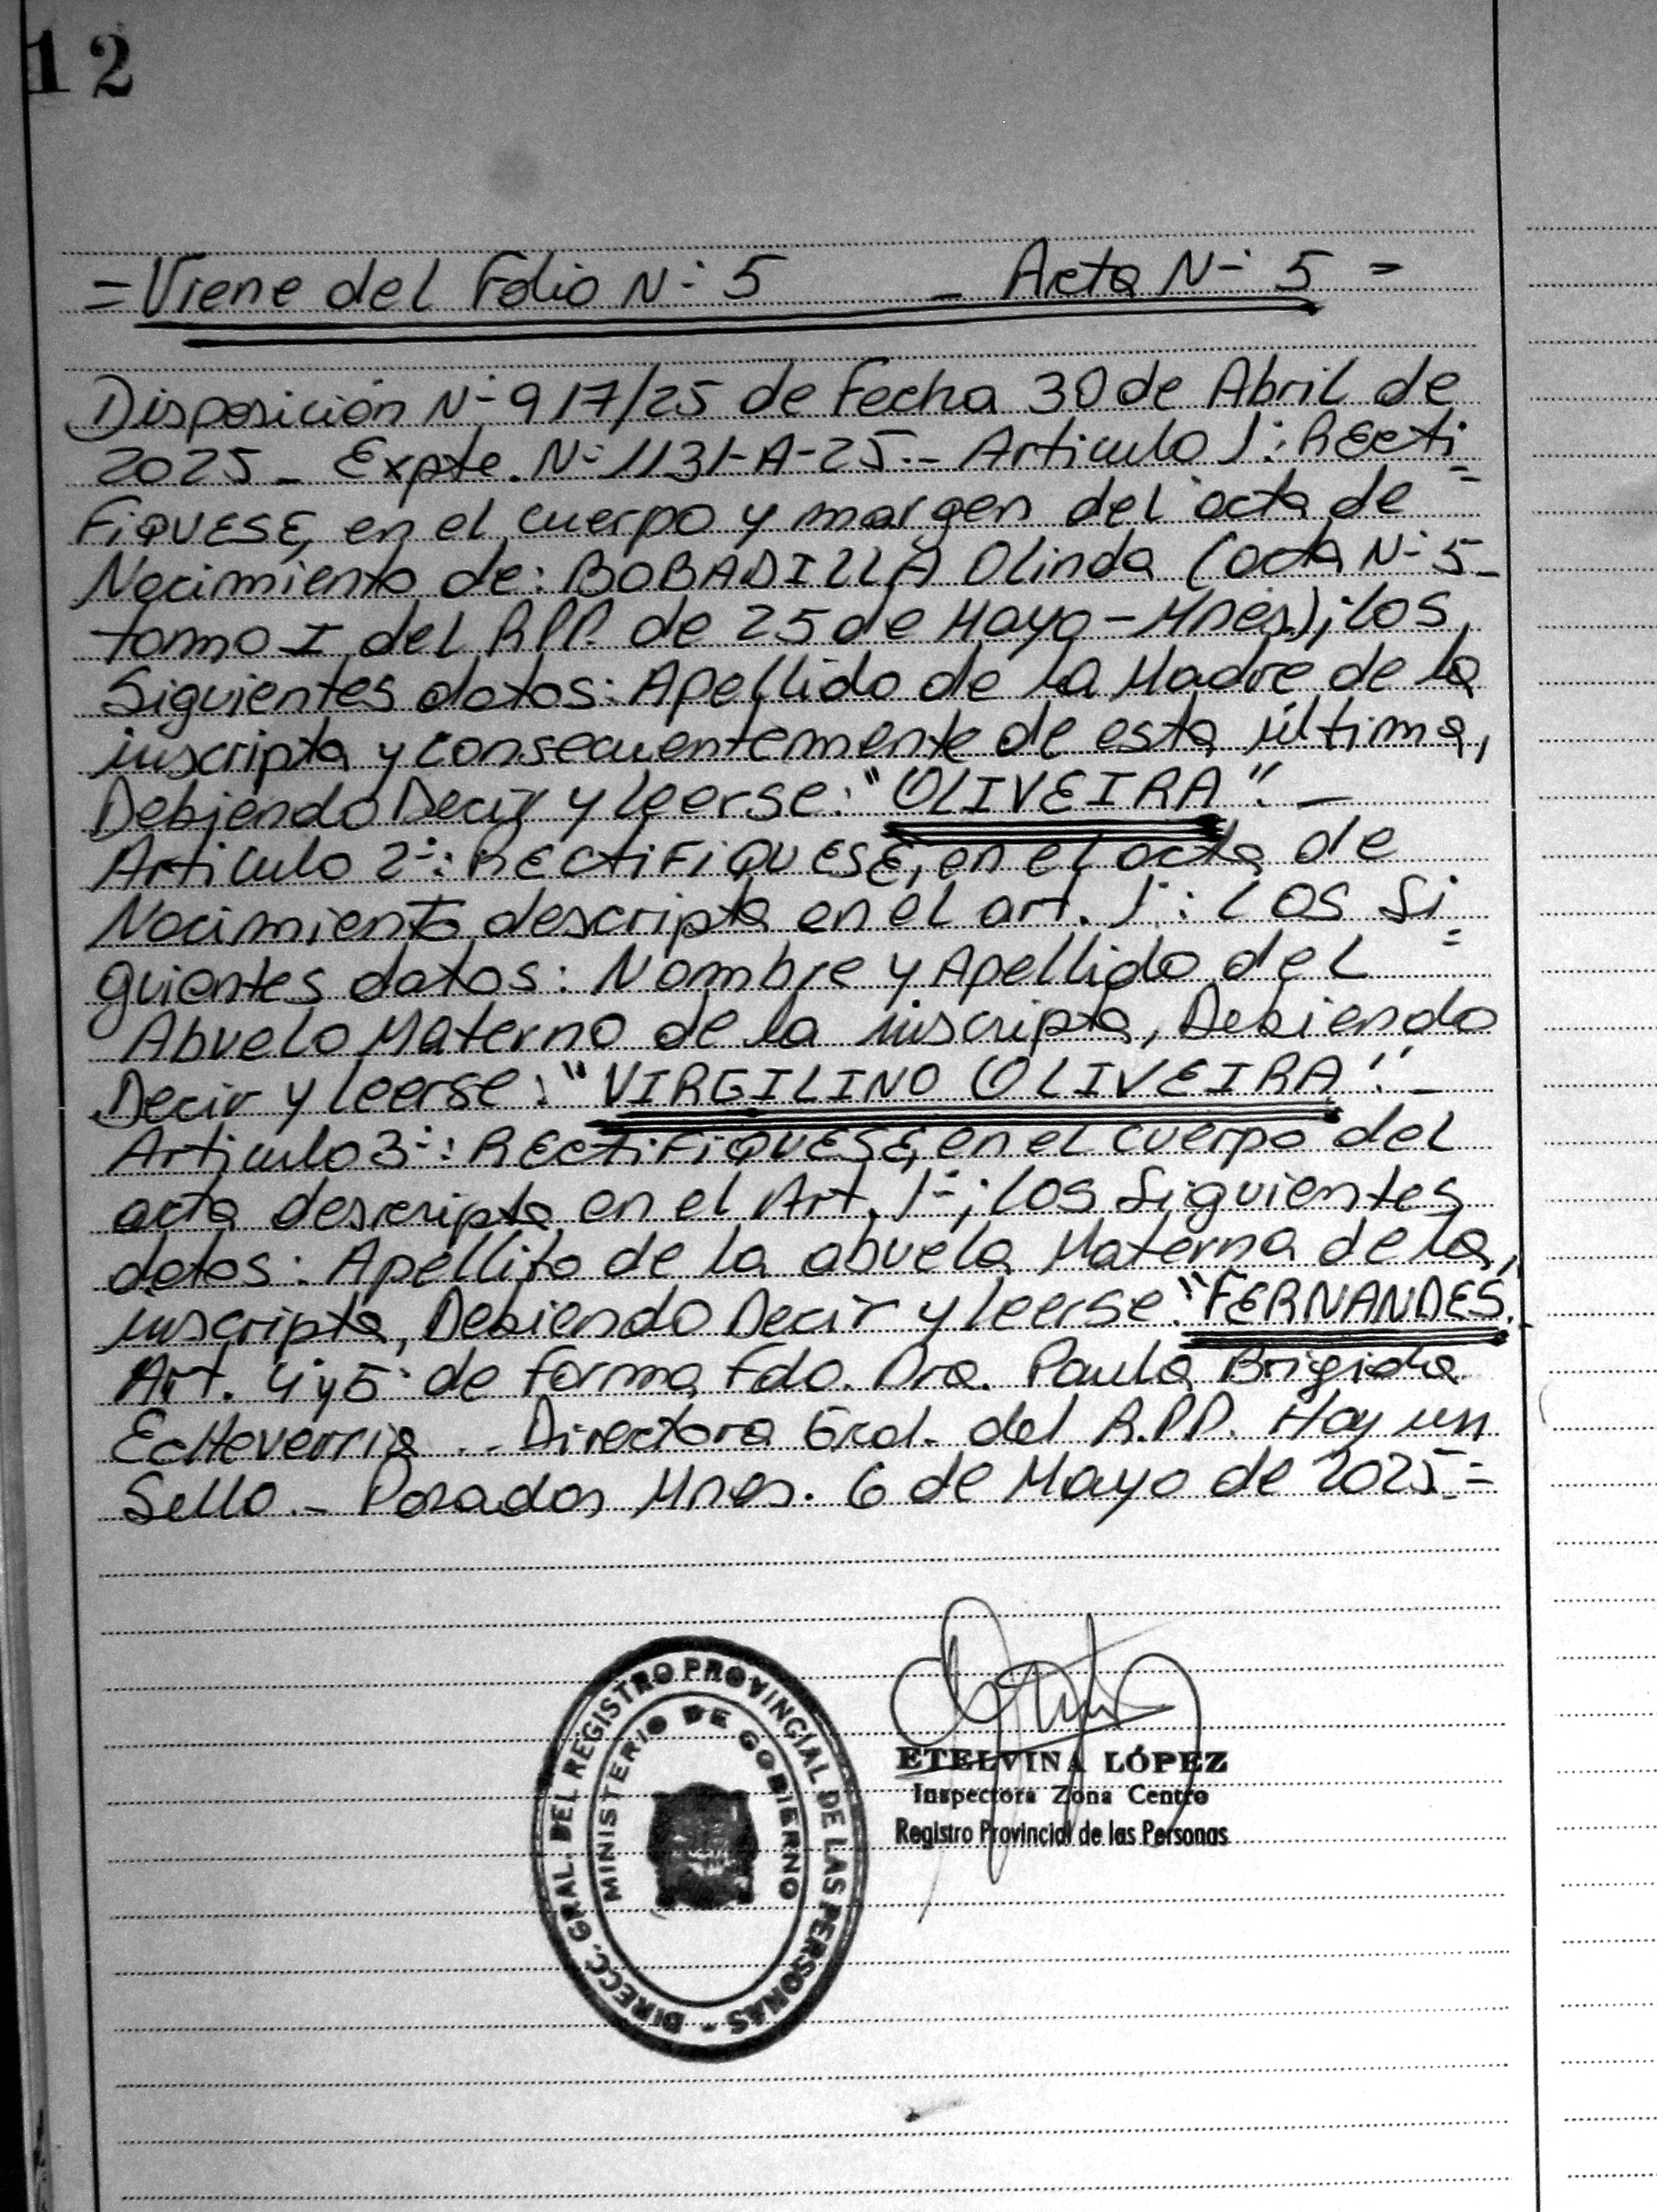 12
= Viene del Folio N° 5 - Acta N° 5 =
Disposición N° 917/25 de Fecha 30 de Abril de
2025 - Expte. N° 1131-A-25.- Articulo 1°: REcti=
FiQUESE, en el cuerpo y margen del acta de
Nacimiento de: BOBADILLA Olinda (acta N° 5-
tomo I del R.P.P. de 25 de Mayo - Mnes.); los
Siguientes datos: Apellido de la Madre de la
inscripta y consecuentemente de esta última,
Debiendo Decir y leerse: "OLIVEIRA". -
Articulo 2°: RECtiFiQUESE, en el acta de
Nacimiento descripta en el art. 1°: LOS Si=
guientes datos: Nombre y Apellido del
Abuelo Materno de la inscripta, Debiendo
Decir y leerse: "VIRGILINO OLIVEIRA". -
Articulo 3°: RECtiFiQUESE, en el cuerpo del
acta descripta en el Art. 1°; los Siguientes
datos: Apellido de la abuela Materna de la
inscripta, Debiendo Decir y leerse: "FERNANDES.
Art. 4° y 5° de forma Fdo. Dra. Paula Brigida
EcHeverria .- Directora Gral. del R.P.P. Hay un
Sello.- Posadas Mnes. 6 de Mayo de 2025 =
DIRECC. GRAL. DEL REGISTRO PROVINCIAL DE LAS PERSONAS -
MINISTERIO DE GOBIERNO
ETELVINA LÓPEZ
Inspectora Zona Centro
Registro Provincial de las Personas